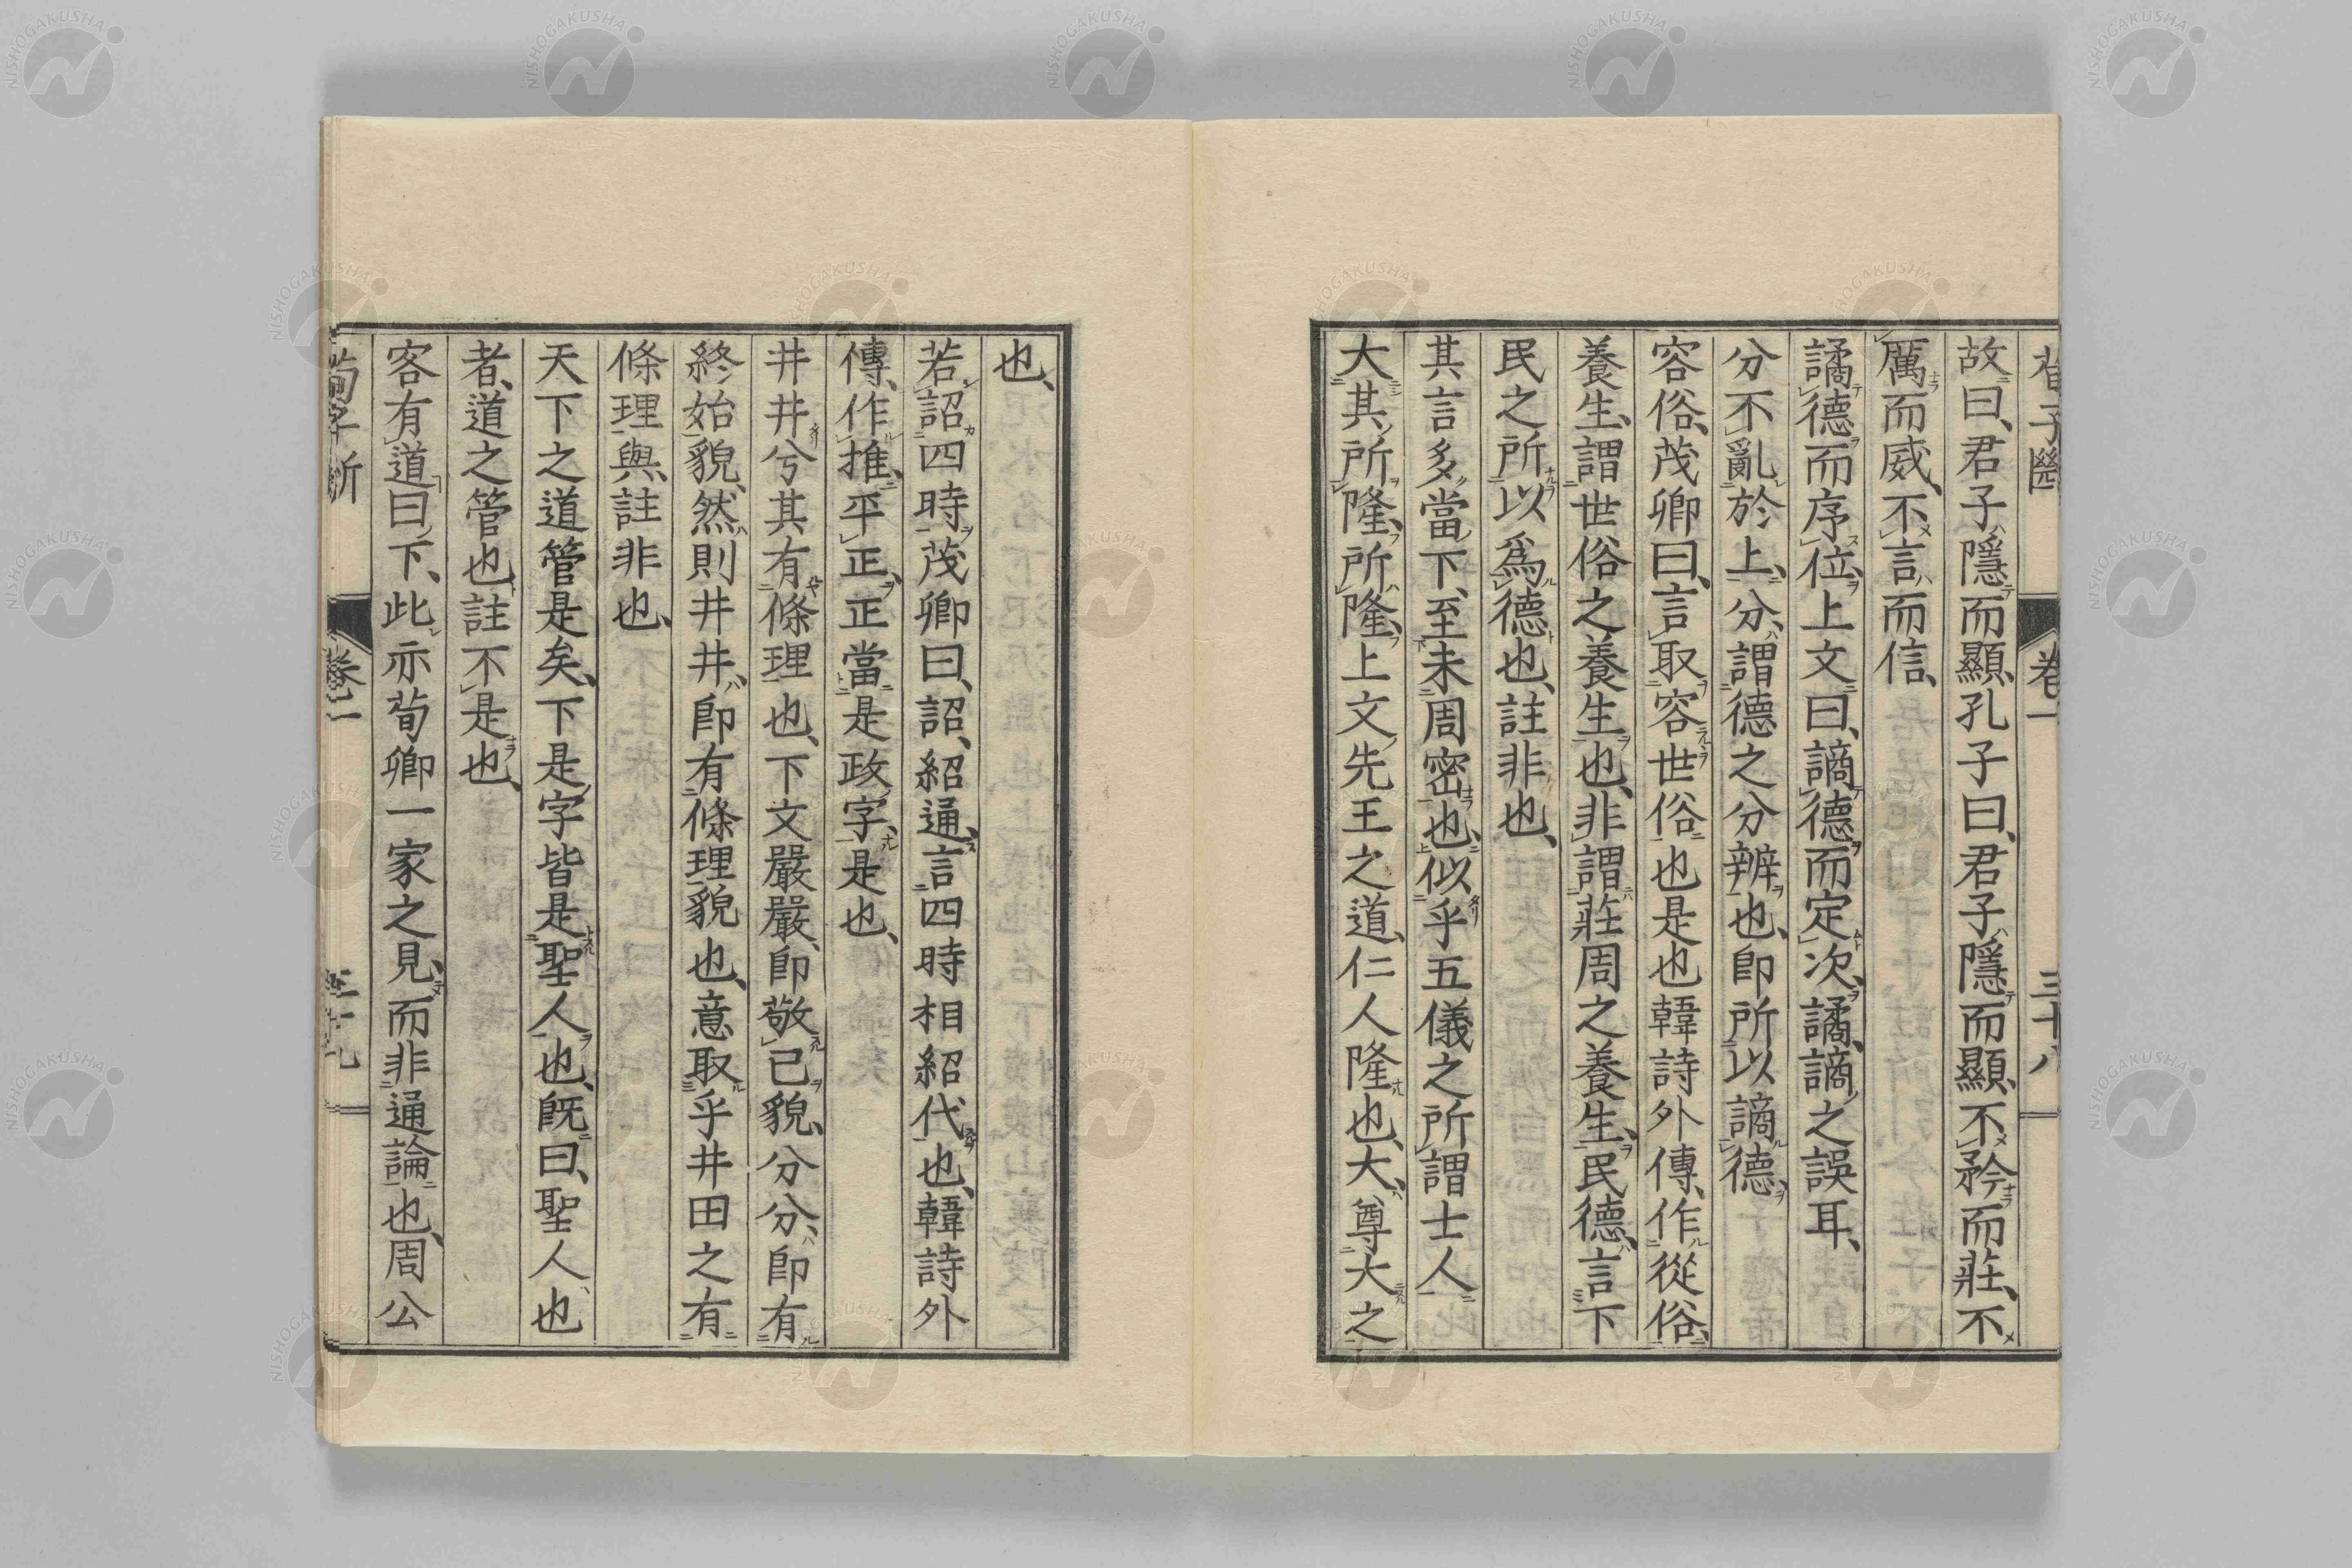 故曰、君子隱而顯、孔子曰、君子隱而顯、不矜而莊、不
厲而威、不言而信、
譎德而序位、上文曰、謫德而定次、譎謫之誤耳、
分不亂於上、分謂德之分辨也、卽所以謫德、
容俗、茂卿曰、言取容世俗也是也韓詩外傳、作從俗、
養生、謂世俗之養生也、非謂莊周之養生、民德、言下
民之所以爲德也、註非也、
其言多當下、至未周密也、似乎五儀之所謂士人
大其所隆、所隆、上文先王之道、仁人隆也、大、尊大之
卷一
三十八
也、
若詔四時、茂卿曰、詔、紹通、言四時相紹代也、韓詩外
傳、作推、平正、正當是政字、是也、
井井兮其有條理也、下文嚴嚴、卽敬已貌、分分、卽有
終始貌、然則井井、卽有條理貌也、意取乎井田之有
條理與、註非也、
天下之道管是矣、下是字皆是聖人也、旣曰、聖人也
者、道之管也、註不是也、
客有道曰、下、此亦荀卿一家之見、而非通論也、周公
NISHOGAKUSHA